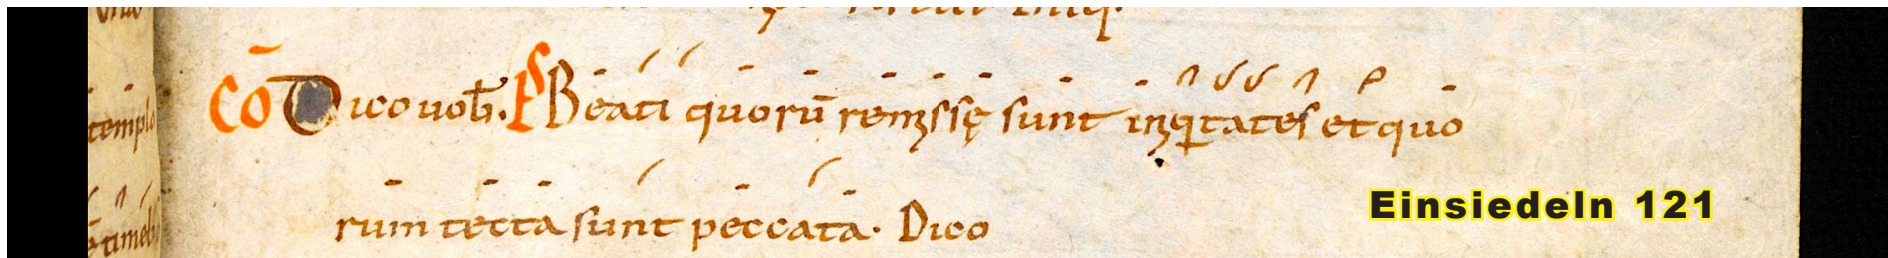 CO Dico uob. PS Beati quorū remissę sunt iniqtates et quo
rum tecta sunt peccata. Dico
templo
Einsiedeln 121